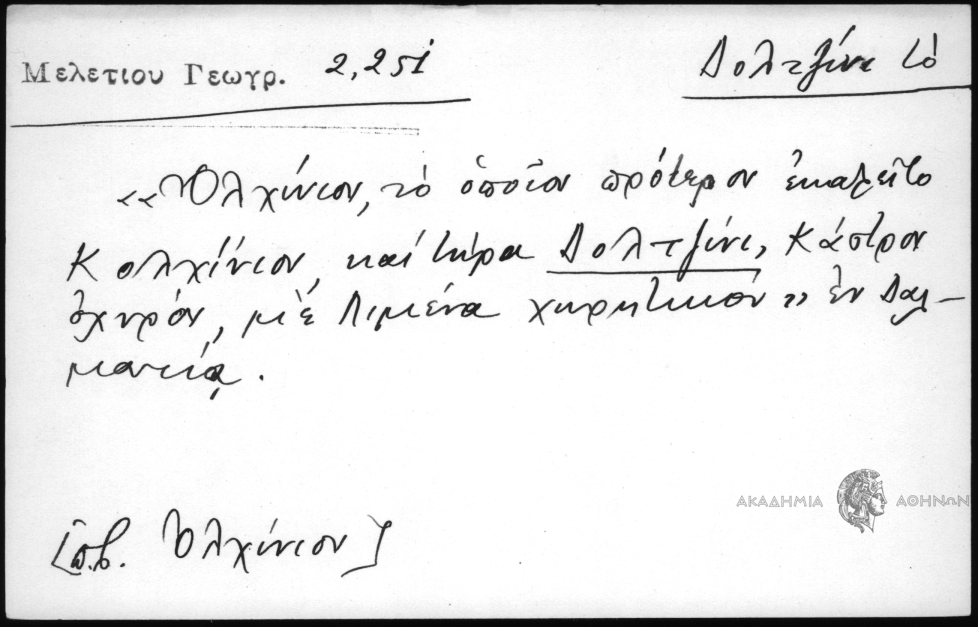 Μελετιου Γεωγρ. 2,251
Δολτζίνι τό
«Ὀλχίνιον, τὸ ὁποῖον πρότερον ἐκαλεῖτο
Κολχίνιον, καί τώρα Δολτζίνι, Κάστρον
ὀχυρόν, μὲ Λιμένα χωρητικόν» ἐν Δαλ-
ματίᾳ.
[πβ. Ὀλχίνιον]
ΑΚΑΔΗΜΙΑ ΑΘΗΝΩΝ